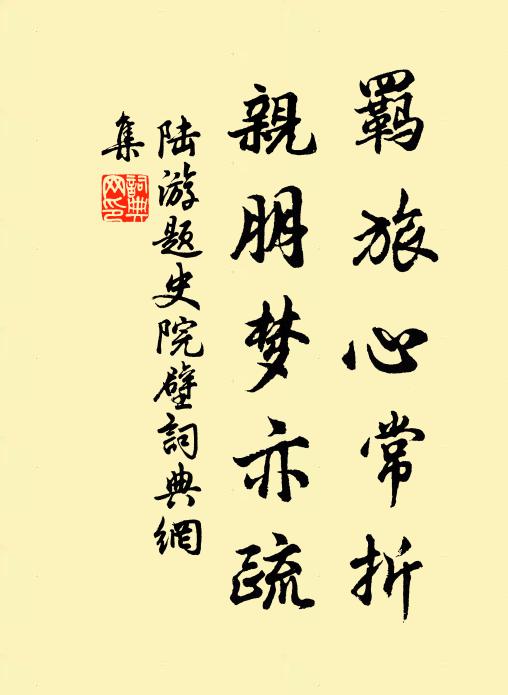 羇旅心常折
親朋梦亦疏
陆游题史院壁詞典網
集
詞典
网印